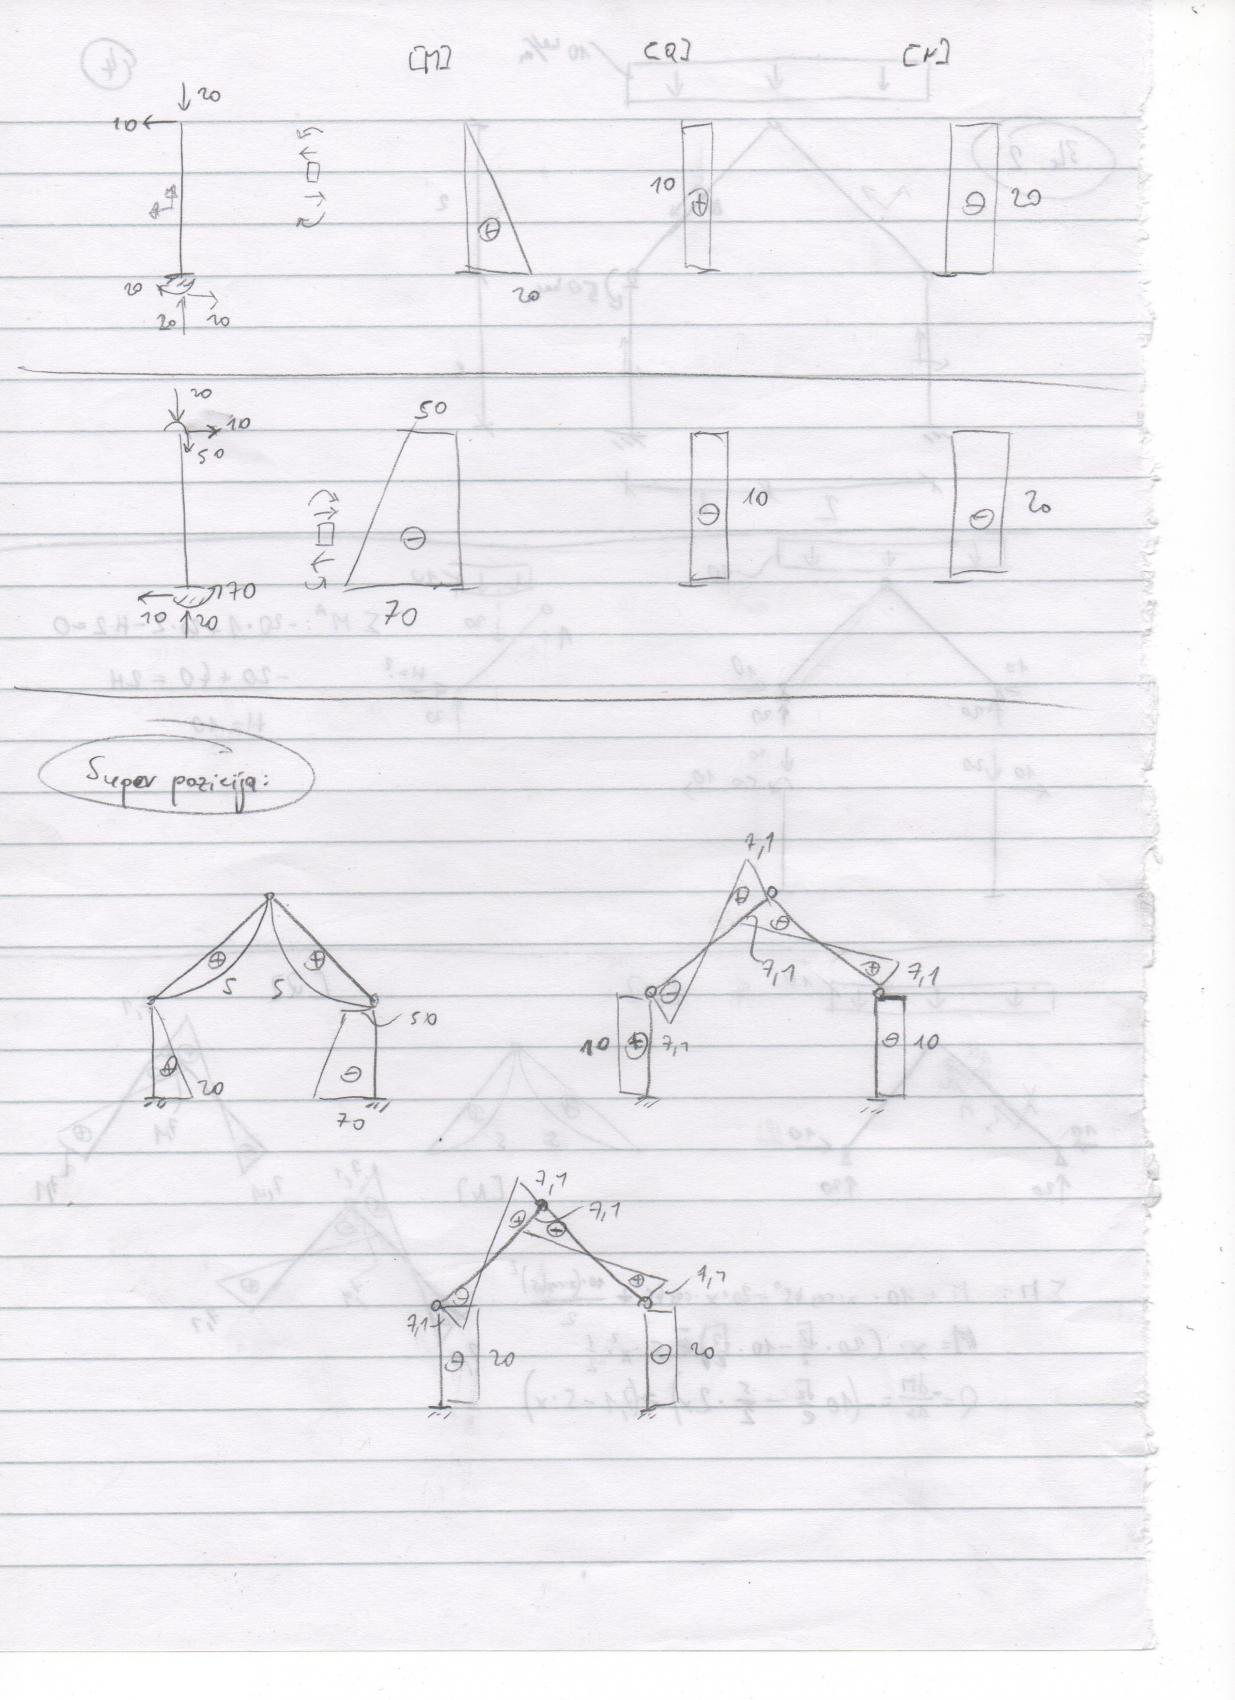 [M] [Q] [N]
20
10
10
20
20
20
20
20
20
50
10
50
10
20
170
10
20
70
Super pozicija:
7,1
7,1
7,1
5
5
50
10
7,1
10
20
70
7,1
7,1
7,1
7,1
20
20